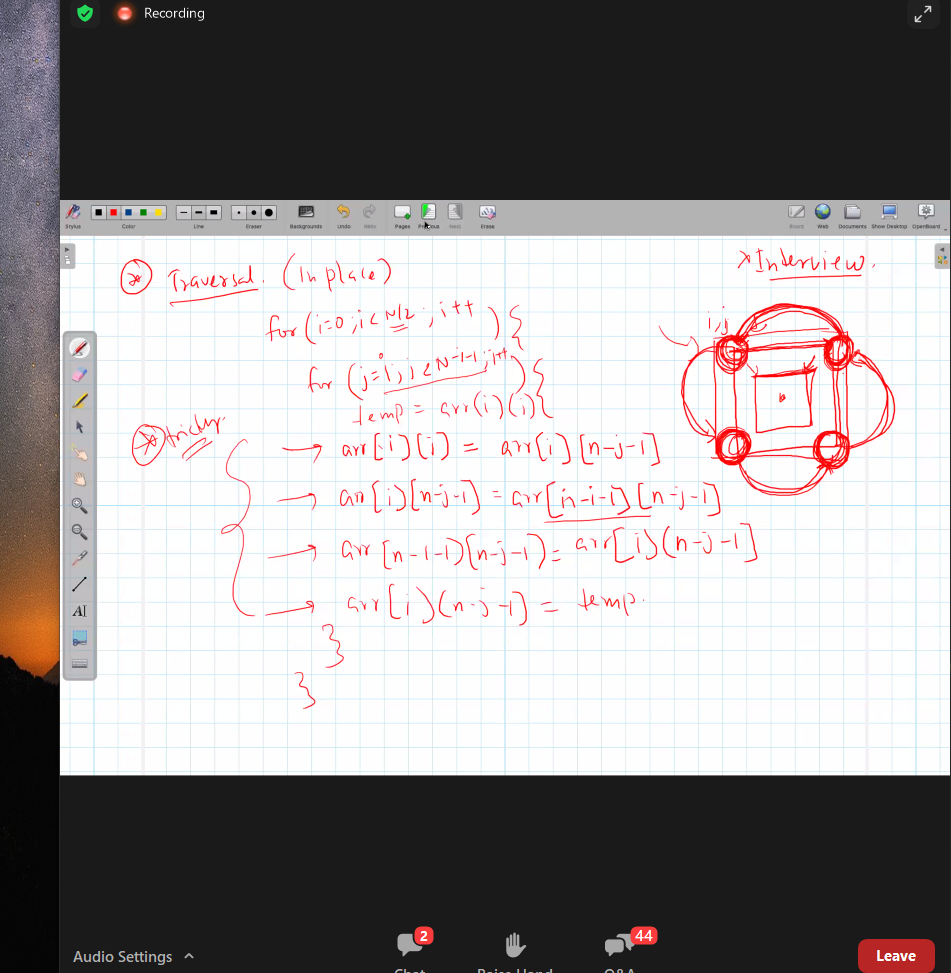 Recording
Stylus Color Line Eraser Backgrounds Undo Redo Pages Previous Next Erase Board Web Documents Show Desktop OpenBoard
* Traversal. (In place)
* Interview.
for (i=0; i<N/2; i++) {
i,j
for (j=i; j<N-i-1; j++) {
temp = arr(i)(j)
* tricky
→ arr[i)(j] = arr[j][n-j-1]
→ arr[i)[n-j-1] = arr[n-i-1][n-j-1]
→ arr [n-1-1)[n-j-1) = arr[i)(n-j-1]
→ arr[i)(n-j-1] = temp.
}
}
AI
Audio Settings
2
44
Chat
Raise Hand
Q&A
Leave